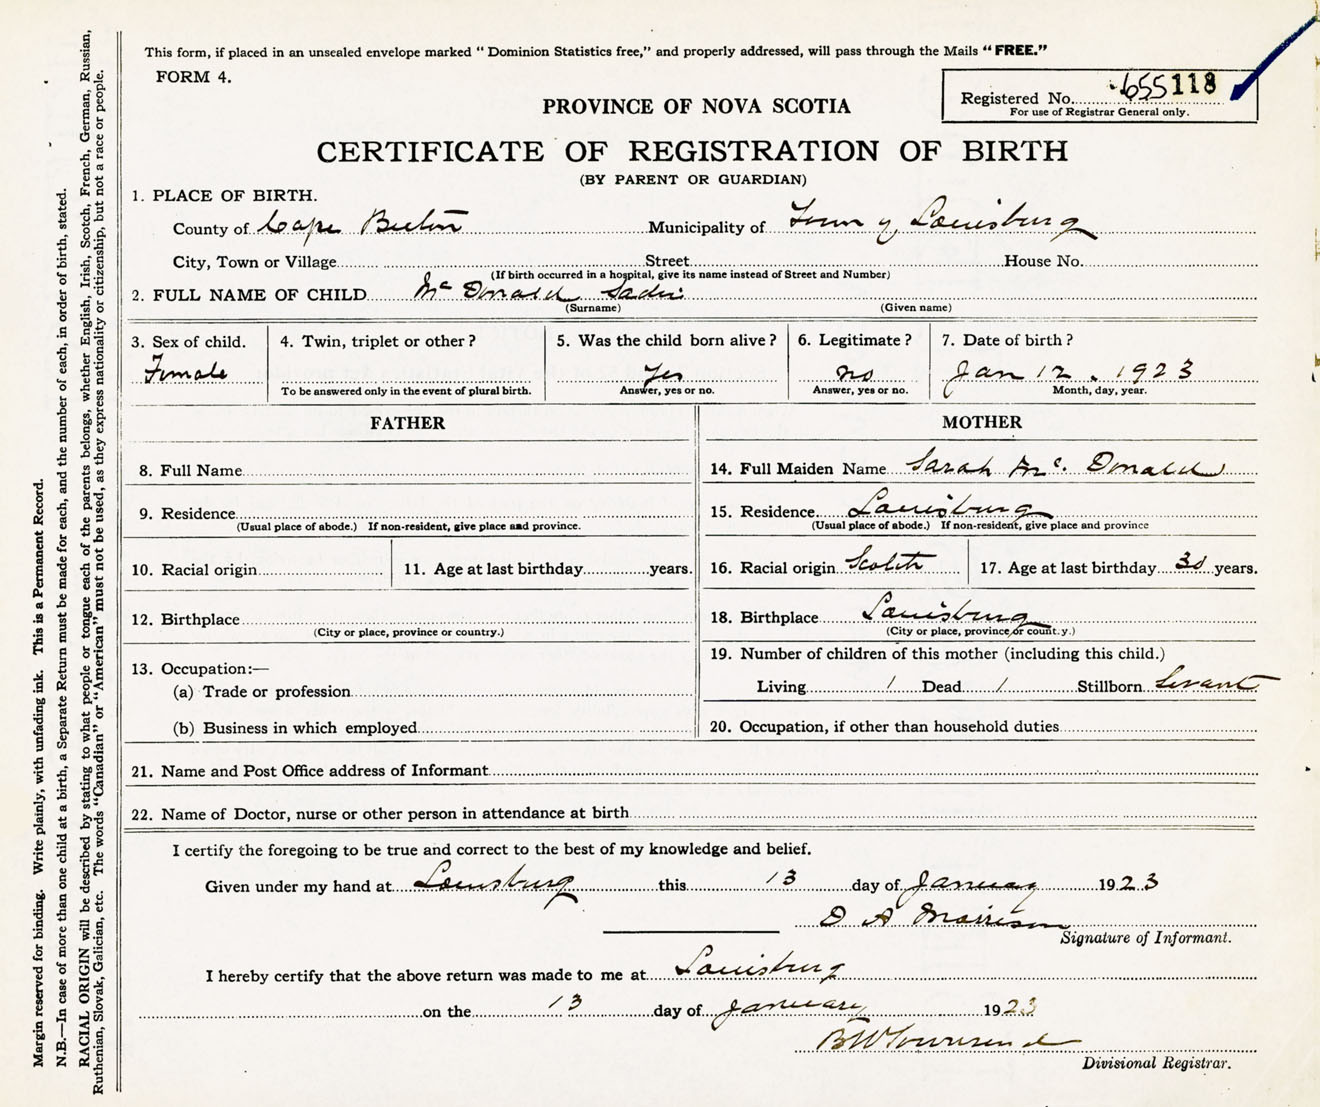 This form, if placed in an unsealed envelope marked "Dominion Statistics free," and properly addressed, will pass through the Mails "FREE."
FORM 4.
Registered No. 655118
For use of Registrar General only.
PROVINCE OF NOVA SCOTIA
CERTIFICATE OF REGISTRATION OF BIRTH
(BY PARENT OR GUARDIAN)
1. PLACE OF BIRTH.
County of Cape Breton Municipality of Town of Louisburg
City, Town or Village Street House No.
(If birth occurred in a hospital, give its name instead of Street and Number)
2. FULL NAME OF CHILD McDonald Sadie
(Surname) (Given name)
3. Sex of child. 4. Twin, triplet or other? 5. Was the child born alive? 6. Legitimate? 7. Date of birth?
Female Yes no Jan 12. 1923
To be answered only in the event of plural birth. Answer, yes or no. Answer, yes or no. Month, day, year.
FATHER MOTHER
8. Full Name 14. Full Maiden Name Sarah Mc. Donald
9. Residence 15. Residence Louisburg
(Usual place of abode.) If non-resident, give place and province. (Usual place of abode.) If non-resident, give place and province
10. Racial origin 11. Age at last birthday years. 16. Racial origin Scotch 17. Age at last birthday years.
12. Birthplace 18. Birthplace Louisburg
(City or place, province or country.) (City or place, province or country.)
13. Occupation:— 19. Number of children of this mother (including this child.)
(a) Trade or profession Living 1 Dead 1 Stillborn Servant
(b) Business in which employed 20. Occupation, if other than household duties
21. Name and Post Office address of Informant
22. Name of Doctor, nurse or other person in attendance at birth
I certify the foregoing to be true and correct to the best of my knowledge and belief.
Given under my hand at Louisburg this 13 day of January 1923
D A Morrison
Signature of Informant.
I hereby certify that the above return was made to me at Louisburg
on the 13 day of January 1923
BW Townsend
Divisional Registrar.
Margin reserved for binding. Write plainly, with unfading ink. This is a Permanent Record.
N.B.—In case of more than one child at a birth, a Separate Return must be made for each, and the number of each, in order of birth, stated.
RACIAL ORIGIN will be described by stating to what people or tongue each of the parents belongs, whether English, Irish, Scotch, French, German, Russian,
Ruthenian, Slovak, Galician, etc. The words "Canadian" or "American" must not be used, as they express nationality or citizenship, but not a race or people.